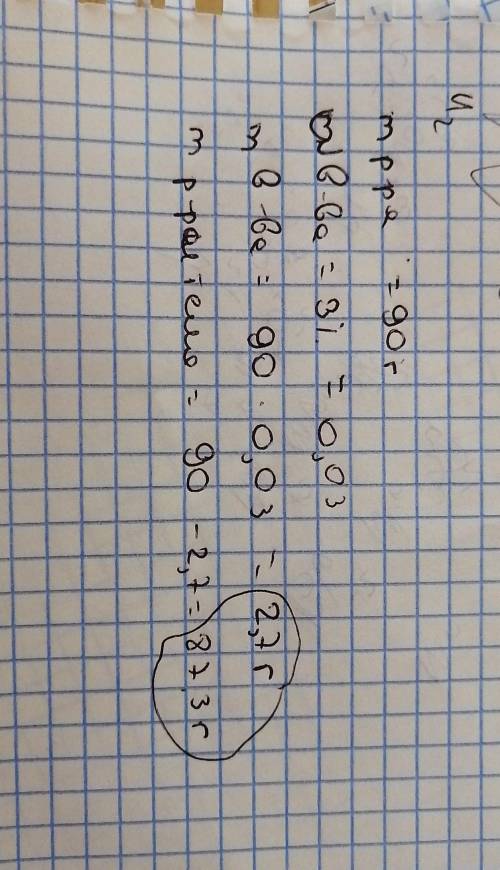 И2
m р-ра = 90 г
ω в-ва = 3% = 0,03
m в-ва = 90 · 0,03 = 2,7 г
m р-рителю = 90 - 2,7 = 87,3 г